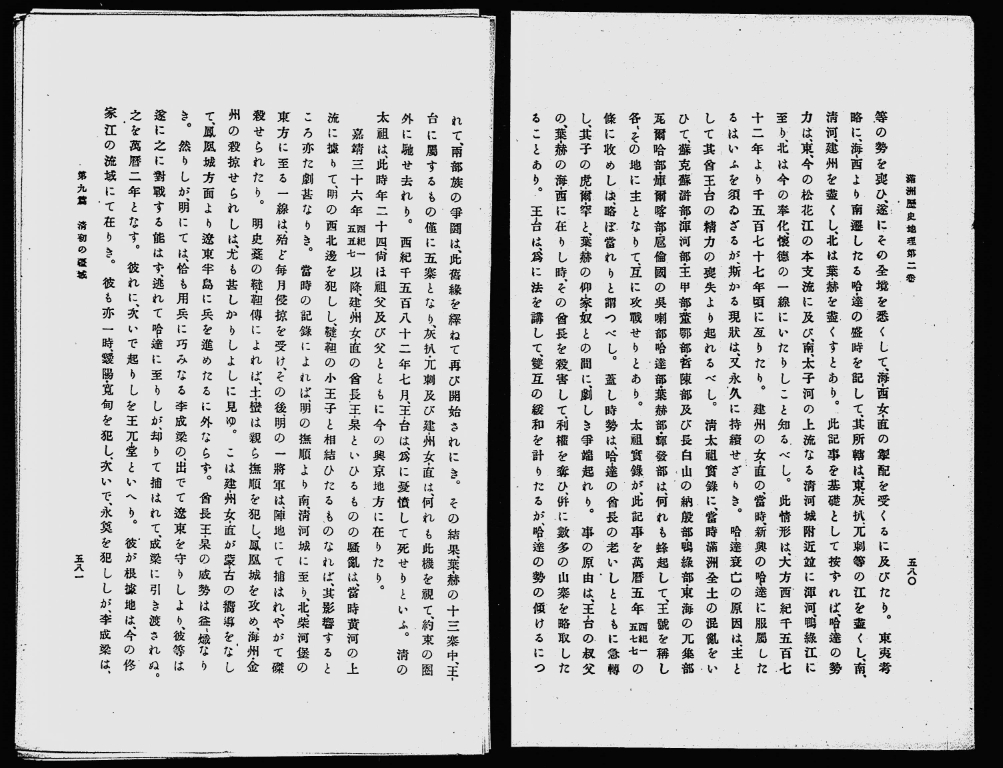 滿洲歷史地理第二卷
五八〇
等の勢を喪ひ、遂にその全境を悉くして、海西女直の掣配を受くるに及びたり。東夷考
略に、海西より南遷したる哈達の盛時を記して、其所轄は、東灰扒兀刺等の江を盡くし、南、
清河、建州を盡くし、北は葉赫を盡くすとあり。此記事を基礎として按ずれば、哈達の勢
力は、東今の松花江の本支流に及び、南、太子河の上流なる清河城附近並に渾河鴨綠江に
至り、北は今の奉化、懷德の一線にいたりしこと知るべし。此情形は、大方西紀千五百七
十二年より千五百七十七年頃に亙りたり。建州の女直の、當時、新興の哈達に服屬した
るはいふを須ゐざるが、斯かる現狀は、又永久に持續せざりき。哈達衰亡の原因は主と
して其酋王台の精力の喪失より起れるべし。清太祖實錄に、當時滿洲全土の混亂をい
ひて、蘇克蘇滸部、渾河部、王甲部、董鄂部、哲陳部及び長白山の納殷部、鴨綠部、東海の兀集部
瓦爾哈部、庫爾喀部、扈倫國の吳喇部、哈達部、葉赫部、輝發部は何れも蜂起して、王號を稱し
各〻その地に主となりて、互に攻戰せりとあり。太祖實錄が此記事を萬曆五年西紀一五七七の
條に收めしは、略ぼ當れりと謂つべし。蓋し時勢は、哈達の酋長の老いしとともに急轉
し、其子の虎爾罕と、葉赫の仰家奴との間に、劇しき爭端起れり。事の原由は、王台の叔父
の、葉赫の海西に在りし時、その酋長を殺害して利權を奪ひ、併に數多の山寨を略取した
ることあり。王台は、爲に法を講して、雙互の緩和を計りたるが、哈達の勢の傾けるにつ
れて、兩部族の爭鬪は、此舊緣を繹ねて再び開始されにき。その結果、葉赫の十三寨中、王
台に屬するもの僅に五寨となり、灰扒、兀刺及び建州女直は、何れも此機を視て、約束の圈
外に馳せ去れり。西紀千五百八十二年七月、王台は、爲に憂憤して死せりといふ。清の
太祖は、此時年二十四、尙ほ祖父及び父とともに今の興京地方に在りたり。
嘉靖三十六年西紀一五五七以降、建州女直の酋長王杲といひるものの騷亂は、當時黃河の上
流に據りて、明の西北邊を犯しし、韃靼の小王子と相結ひたるものなれば、其影響すると
ころ亦た劇甚なりき。當時の記錄によれば、明の撫順より、南、清河城に至り、北、柴河堡の
東方に至る一線は、殆ど每月侵掠を受け、その後、明の一將軍は、陣地にて捕はれ、やがて磔
殺せられたり。明史藁の韃靼傳によれば、土蠻は親ら撫順を犯し、鳳凰城を攻め、海州、金
州の殺掠せられしは、尤も甚しかりしよしに見ゆ。こは建州女直が蒙古の嚮導をなし
て、鳳凰城方面より遼東半島に兵を進めたるに外ならず。酋長王杲の威勢は益〻熾なり
き。然りしが、明にては、恰も用兵に巧みなる李成梁の出でて遼東を守りしより、彼等は
遂に之に對戰する能はず、逃れて哈達に至りしが、却りて捕はれて、成梁に引き渡されぬ。
之を萬曆二年となす。彼れに、次いで起りしを王兀堂といへり。彼が根據地は、今の佟
家江の流域にて在りき。彼も亦一時靉陽、寬甸を犯し、次いで、永奠を犯ししが、李成梁は、
第九篇 清初の疆域
五八一